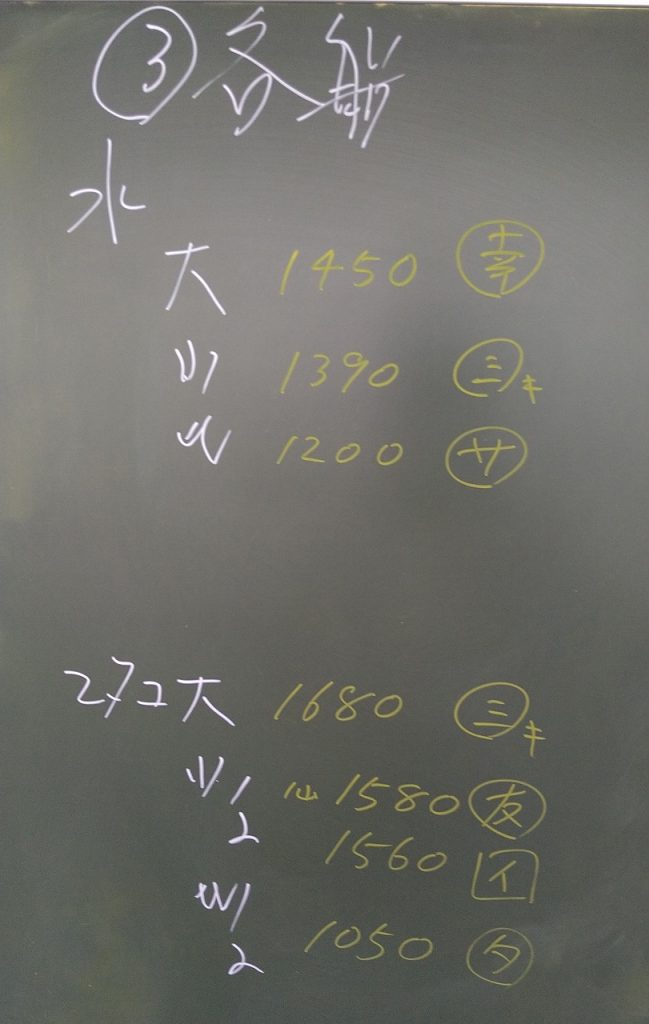 ③各船
水
大 1450 幸
小 1390 三キ
1200 サ
マコ大 1680 三キ
小1 仙 1580 友
2 1560 イ
1
2 1050 タ